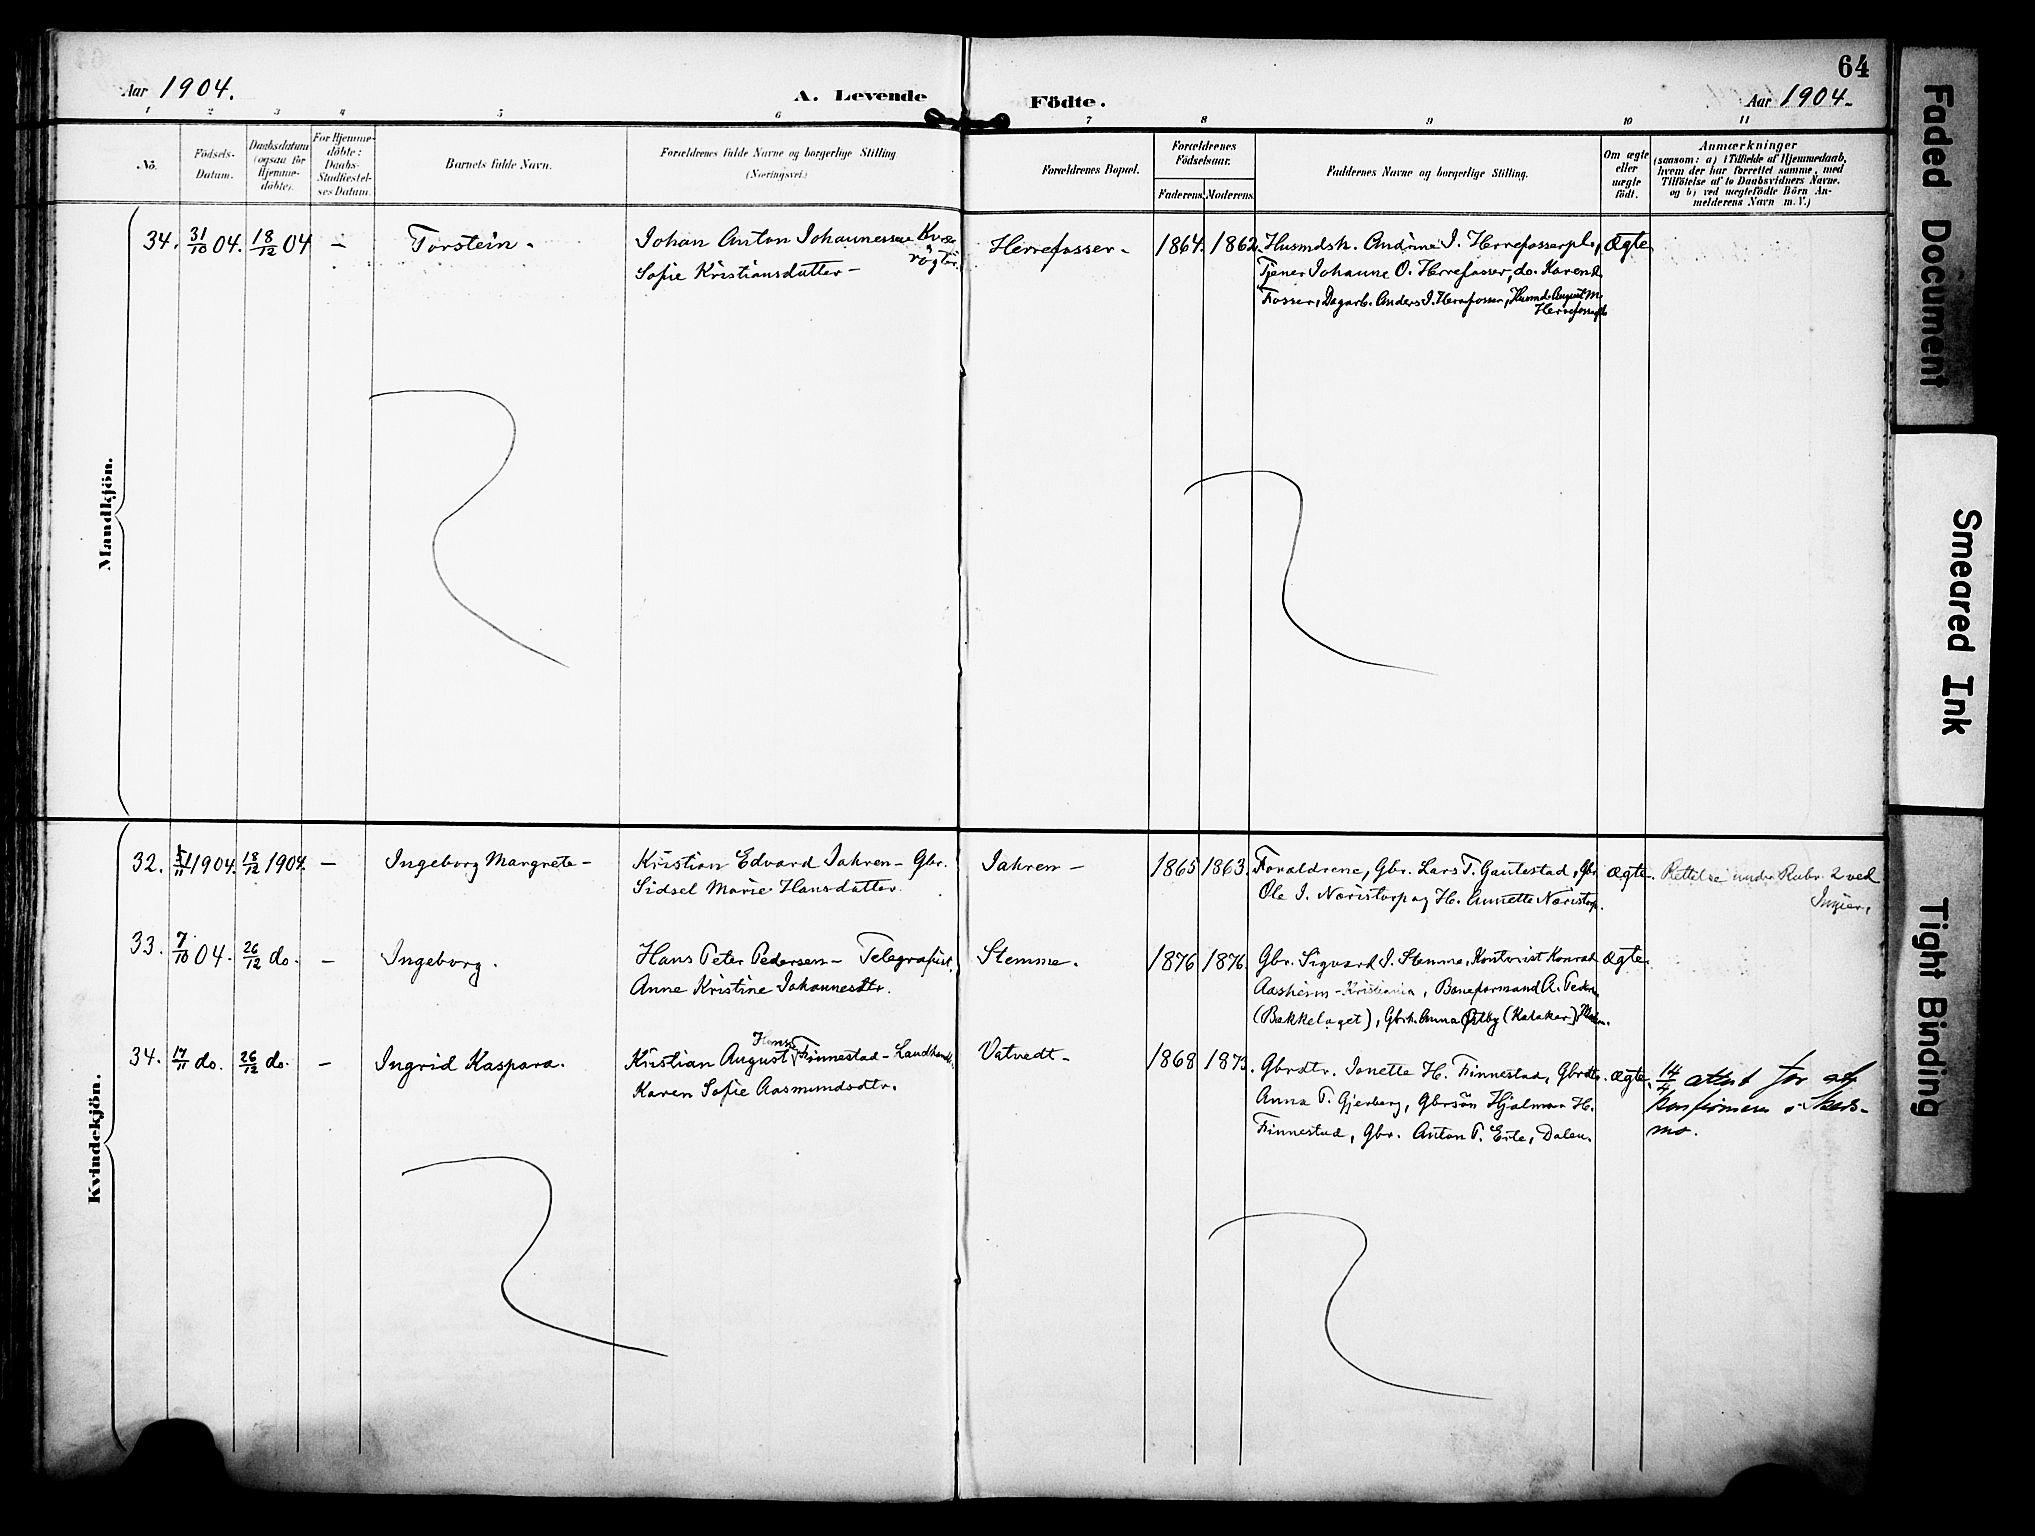 64
Aar 1904.
A. Levende Födte.
Aar 1904.
1 2 3 4 5 6 7 8 9 10 11
No.
Födsels-
Datum.
Daabsdatum
(ogsaa for
Hjemme-
döbte).
For Hjemme-
döbte:
Daabs-
Stadfæstel-
ses Datum.
Barnets fulde Navn.
Forældrenes fulde Navne og borgerlige Stilling
(Næringsvei.)
Forældrenes Bopæl.
Forældrenes
Födselsaar.
Faderens. Moderens.
Faddernes Navne og borgerlige Stilling.
Om ægte
eller
uægte
födt.
Anmærkninger
(saasom: a) i Tilfælde af Hjemmedaab,
hvem der har forrettet samme, med
Tilföielse af to Daabsvidners Navne,
og b) ved uægtefödte Börn An-
melderens Navn m. V.)
Mandkjön.
34. 31/10 04. 18/12 04 – Torstein. Johan Anton Johannessen Kvæg-
røgter.
Sofie Kristiansdatter –
Herrefosser – 1864. 1862. Husmdsk. Andrine J. Herrefosserpl.,
Tjener Johanne O. Herrefosser, do. Karen
Fosser, Dagarb. Anders J. Herrefosser, Husmd. August M.
Herrefosserpl.
Ægte
Kvindekjön.
32. /11 1904. 18/12 1904. – Ingeborg Margrete – Kristian Edvard Jahren – Gbr.
Sidsel Marie Hansdatter.
Jahren – 1865 1863. Forældrene, Gbr. Lars T. Gautestad, Gbr.
Ole J. Næristorp og H. Annette Næristorp.
Ægte. Rettelse under Rubr. 2 ved
33. 7/10 04. 26/12 do. – Ingeborg. Hans Peter Pedersen – Telegrafist.
Anne Kristine Johannesdtr.
Stemme. 1876 1876. Gbr. Sigvard J. Stemme, Kontorist Konrad
Aasheim – Kristiania, Baneformand A. Peders
(Bækkelaget), Gbrk. Anna Østby
Ægte.
34. 17/11 do. 26/12 do. – Ingrid Kaspara. Kristian August Hans. Finnestad – Landhandl.
Karen Sofie Aasmundsdtr.
Vatvedt – 1868 1873. Gbrdtr. Janette H. Finnestad, Gbrdtr.
Anna T. Gjerberg, Gbrsön Hjalmar H.
Finnestad, Gbr. Anton T. Erte, Dalen.
Ægte. 14/4 attest for at
konfirmeres i Skeds-
mo.
Faded Document
Smeared Ink
Tight Binding